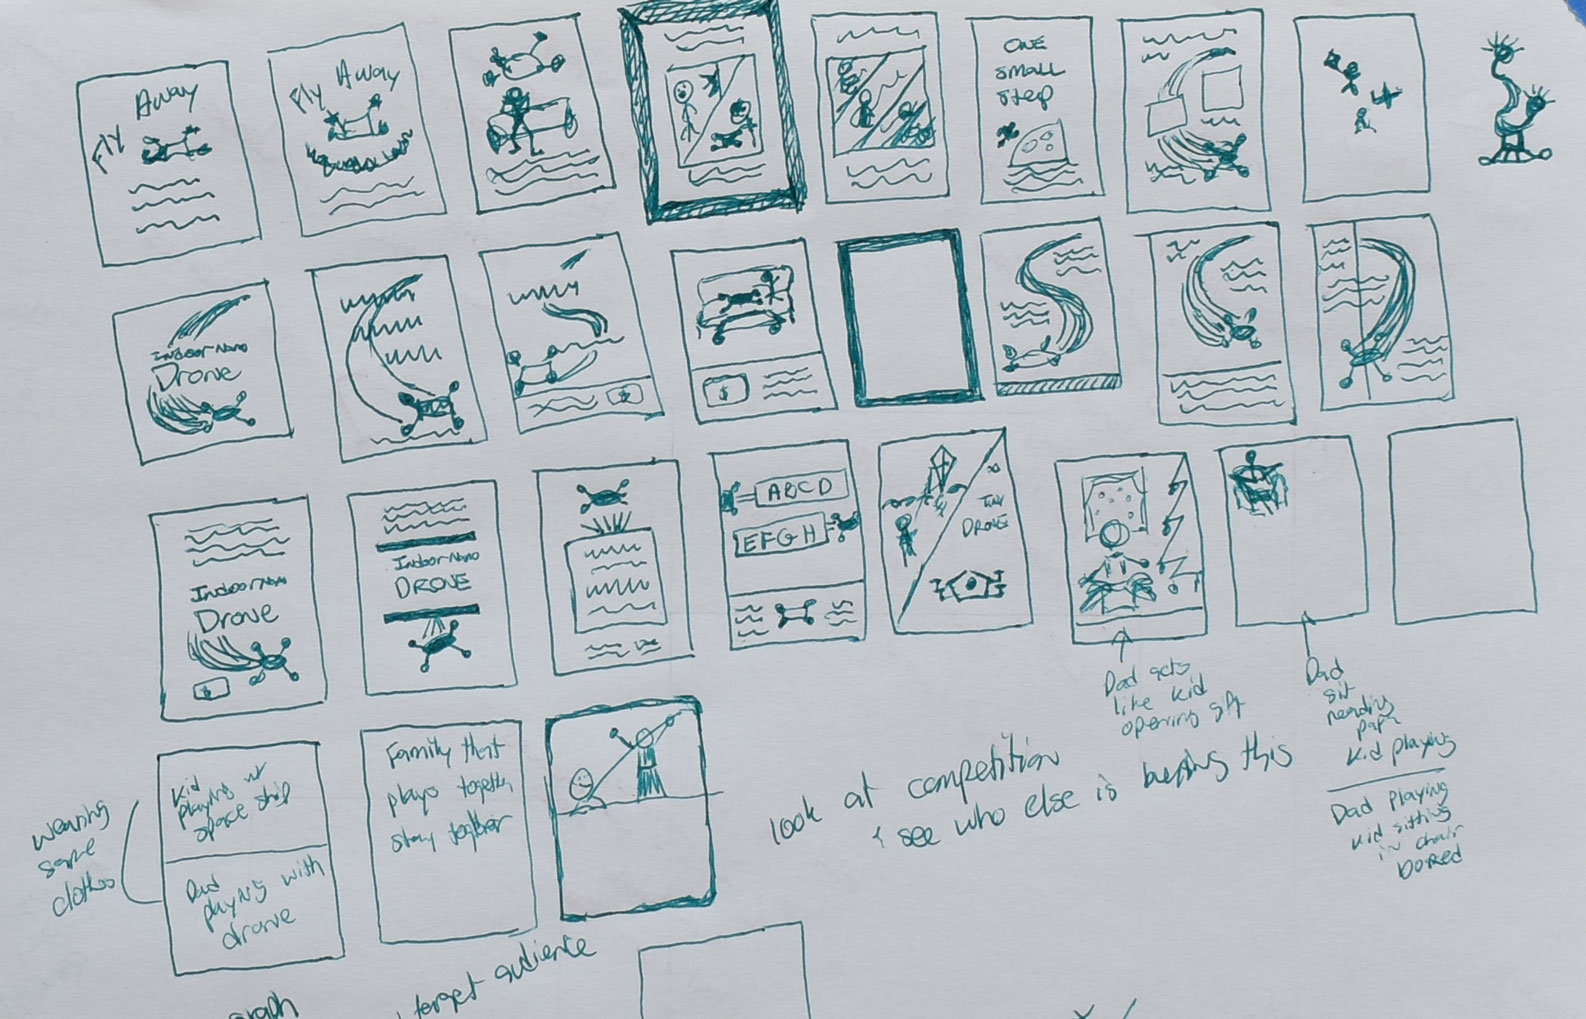 Fly Away
Fly Away
ONE
small
step
Indoor Nano
Drone
$
$
Indoor Nano
Drone
$
Indoor Nano
DRONE
ABCD
EFGH
TINY
DRONE
Dad acts
like kid
opening gift
Dad
sit
reading
papr
Kid playing
Dad Playing
kid sitting
in chair
bored
wearing
same
clothes
Kid
playing w/
space ship
Dad
playing with
drone
Family that
plays together
stay together
look at competition
& see who else is buying this
graph
target audience